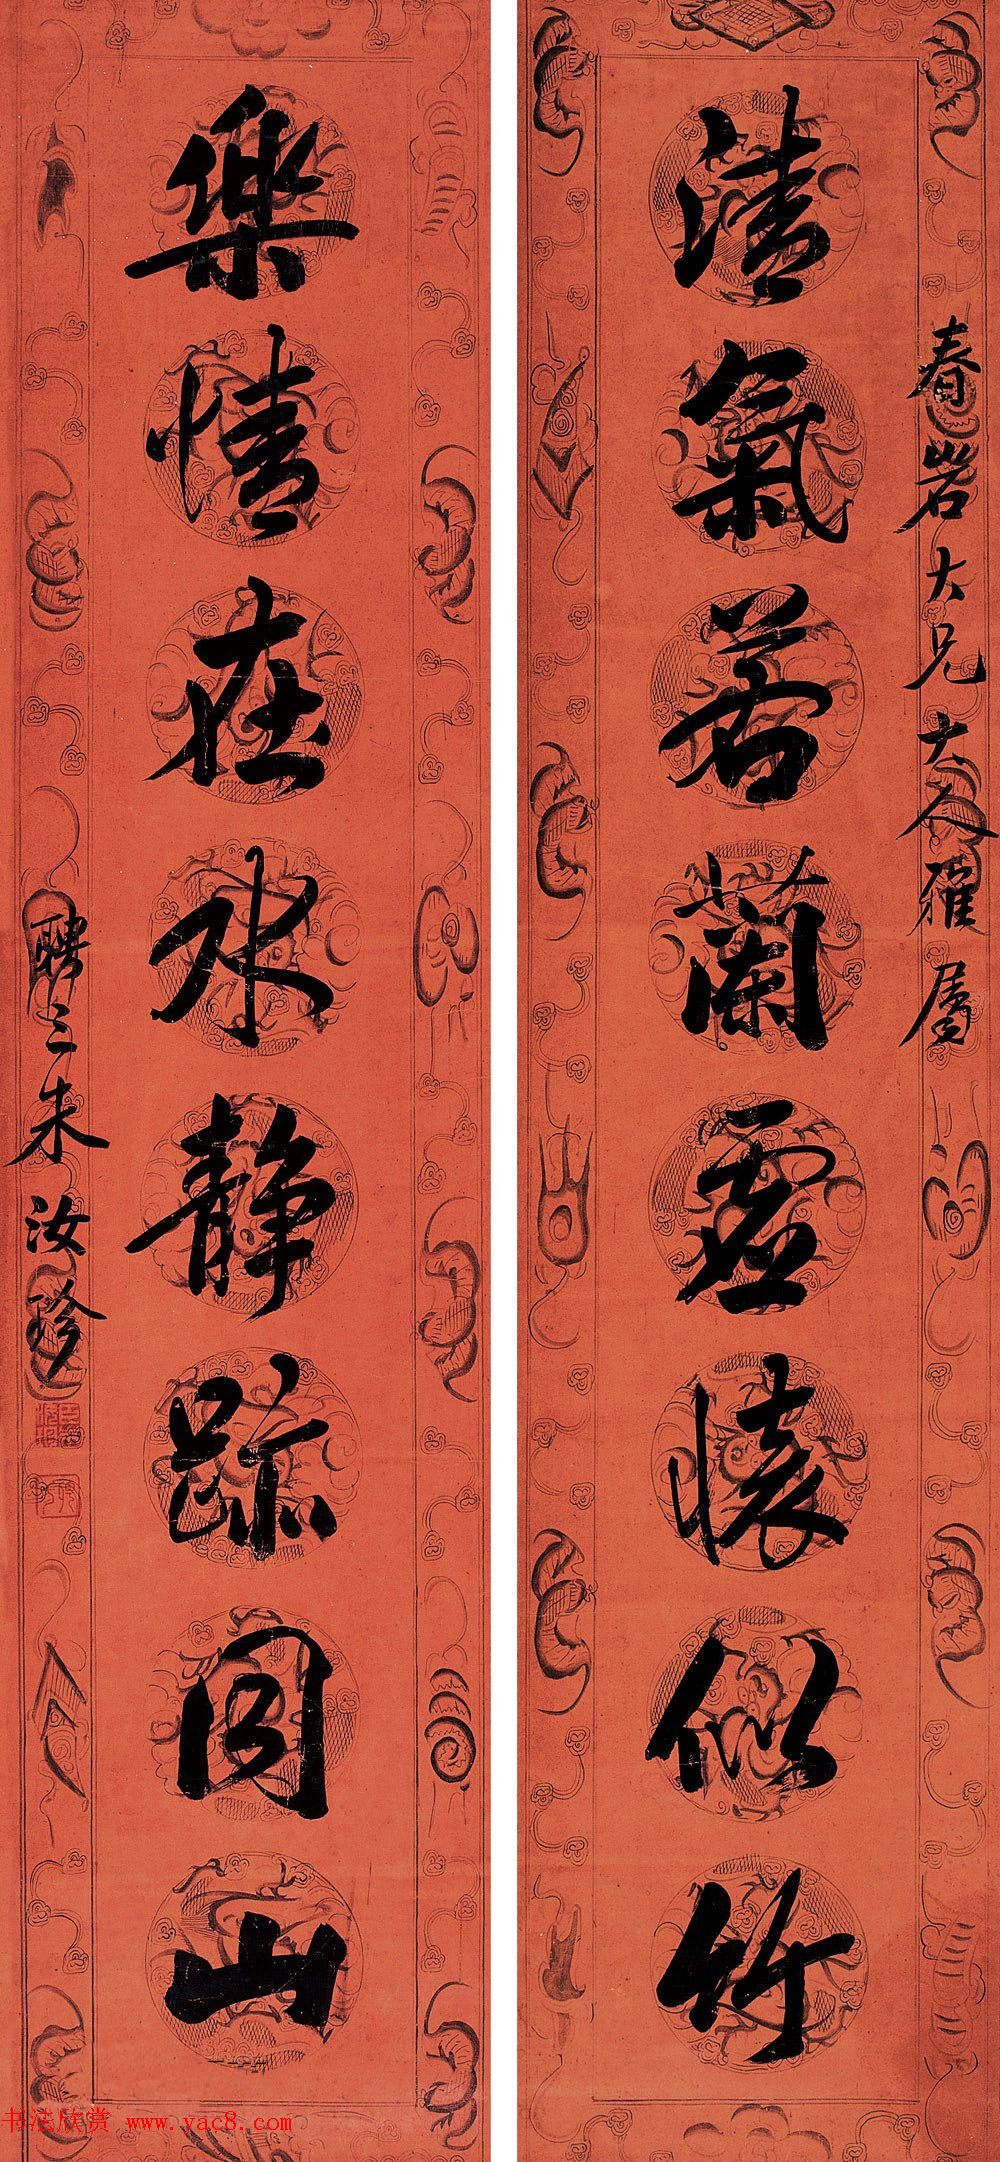 春岩大兄大人雅属
清氣若蘭虛懷似竹
樂情在水靜跡同山
聘三朱汝珍
书法欣赏 www.yac8.com